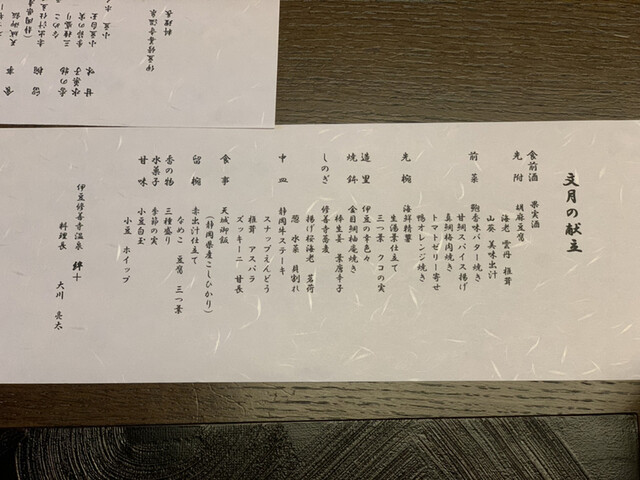 文月の献立
食前酒　果実酒
先附　胡麻豆腐
海老　雲丹　椎茸
山葵　美味出汁
前菜　鮑香味バター焼き
甘鯛スパイス揚げ
真鯛梅肉焼き
トマトゼリー寄せ
鴨オレンジ焼き
先椀　海鮮精算
生湯葉仕立て
三つ葉　クコの実
造里　伊豆の幸色々
焼鉢　金目鯛柚庵焼き
棒生姜　葉唐辛子
しのぎ　修善寺蕎麦
揚げ桜海老　茗荷
葱　水菜　貝割れ
中皿　静岡牛ステーキ
スナップえんどう
椎茸　アスパラ
ズッキーニ　甘長
食事　天城御飯
(静岡県産こしひかり)
留椀　赤出汁仕立て
なめこ　豆腐　三つ葉
香の物　三種盛り
水菓子　季節の実
甘味　小豆白玉
小豆　ホイップ
伊豆修善寺温泉　絆十
料理長　大川　亮太